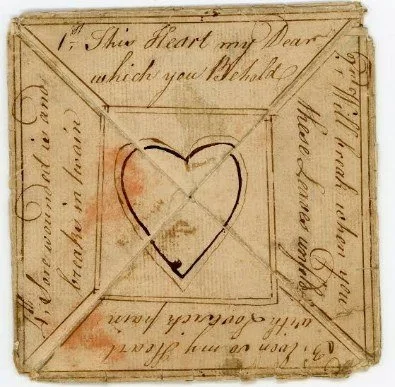 1st This Heart my Dear
which you Behold
2d Will break when you
these Leaves unfold
3d Even so my Heart
with Lovesick pain
4th Sore wounded is and
breaks in twain